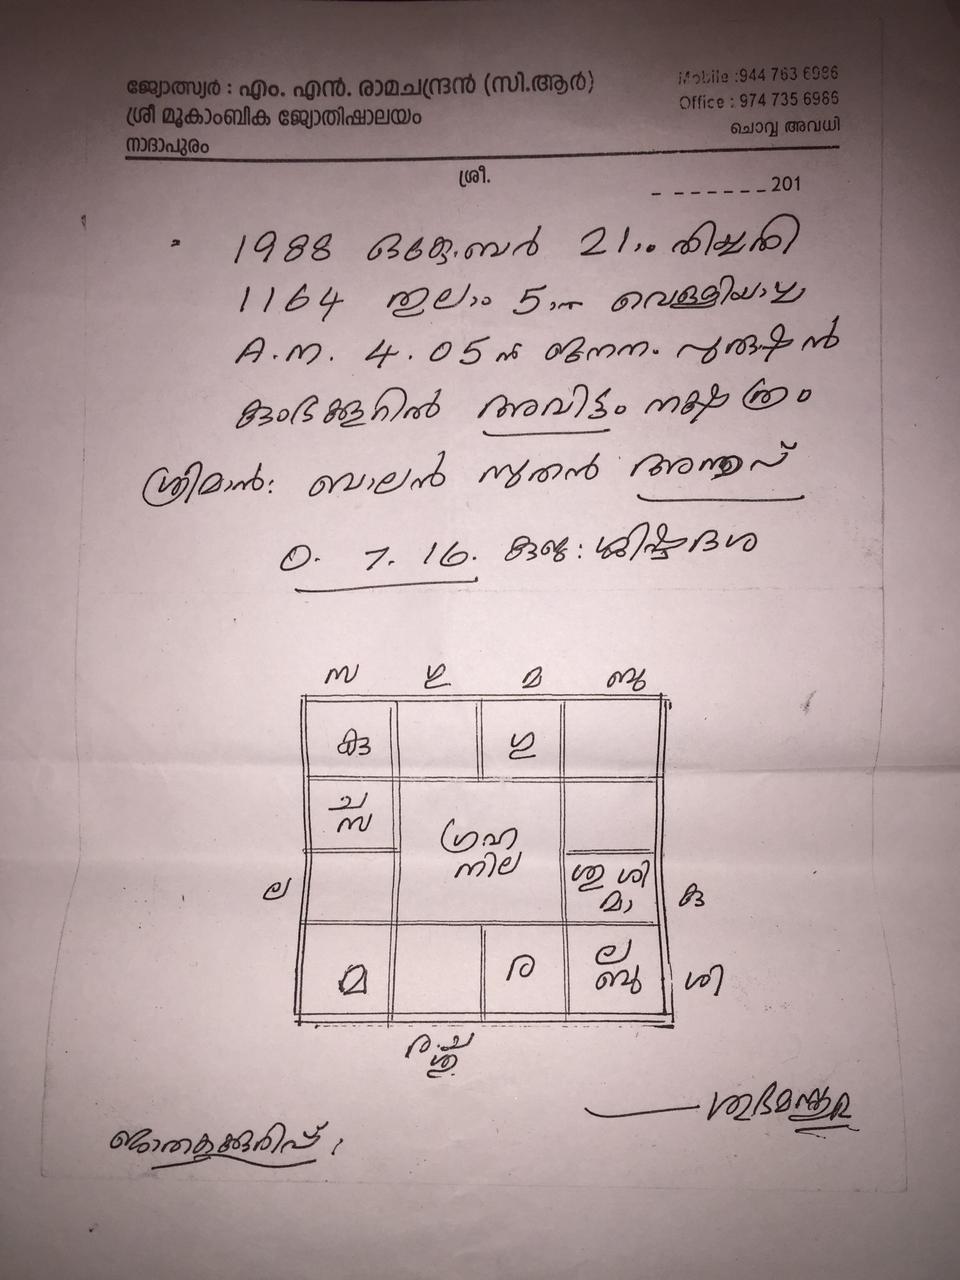 ജ്യോത്സ്യർ : എം. എൻ. രാമചന്ദ്രൻ (സി.ആർ)
ശ്രീ മൂകാംബിക ജ്യോതിഷാലയം
നാദാപുരം
Mobile :944 763 6986
Office : 974 735 6986
ചൊവ്വ അവധി
ശ്രീ.
_ _ _ _ _ _ _ 201
1988 ഒക്ടോബർ 21ാം തിയ്യതി
1164 തുലാം 5ാം വെള്ളിയാഴ്ച
A.M. 4.05 ന് ജനനം പുരുഷൻ
കുംഭക്കൂറിൽ അവിട്ടം നക്ഷത്രം
ശ്രീമാൻ: ബാലൻ സുതൻ
0. 7. 16. കുജ: ശിഷ്ടദശ
സ ഗു മ ബു
കു ഗു
ച
സ
ഗ്രഹ
നില
ല
ശു ശി
മാ
കു
മ ര
ല
ബു
ശി
ര ച
ശു
ശുഭമസ്തു
ജാതകക്കുറിപ്പ്